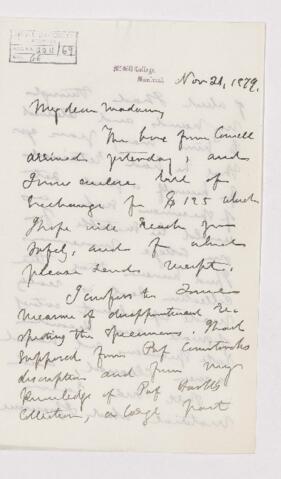 McGill College,
Montreal
Nov 21, 1879.
My dear Madam,
The box from Cornell
arrived yesterday, and
I now enclose bill of
Exchange for $125 which
I hope will reach you
safely, and for which
please send receipt.
I confess to some
measure of disappointment re-
specting the specimens. I had
supposed from Prof Comstock's
description and from my
knowledge of Prof Hartt's
Collection, a large part